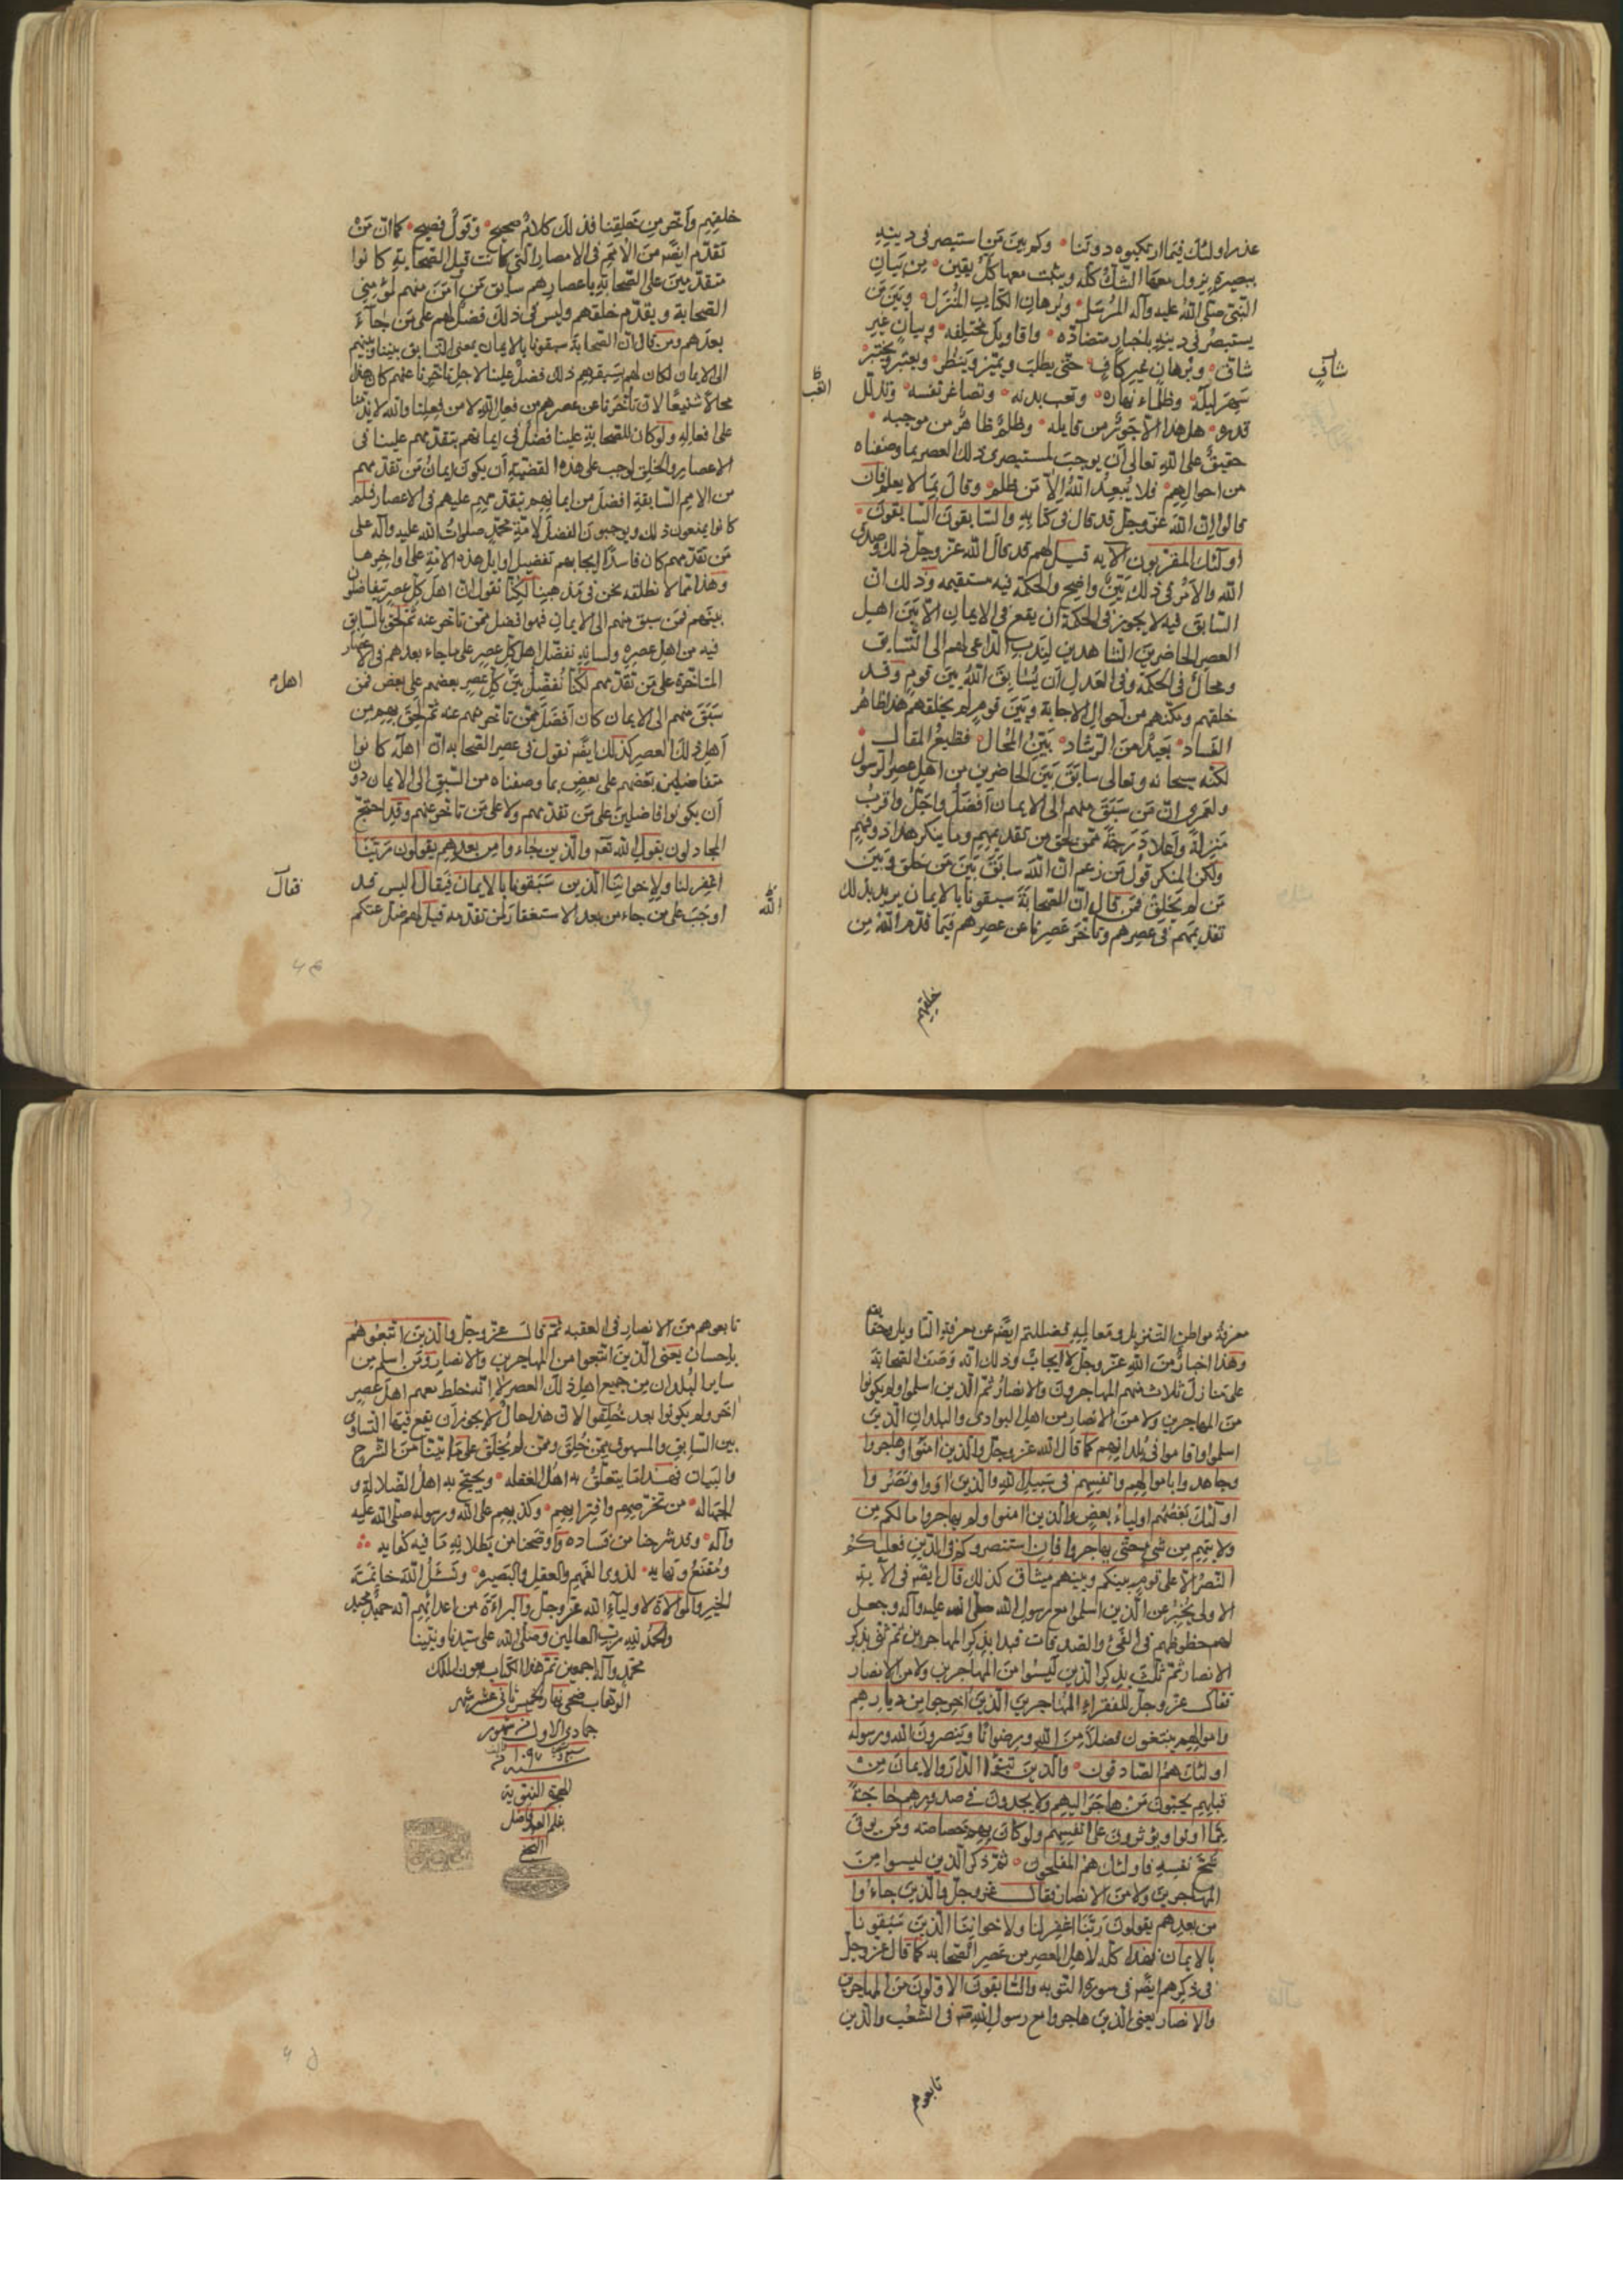 عذر اولئك فيما ارتكبوه دوننا وكم بين من استبصر في دينه
ببصيرة يزول معها الشك كله ويثبت معها كل يقين من بيان
النبي صلى الله عليه وآله المرسل وبرهان الكتاب المنزل وبين من
يستبصر في دينه باخبار متضاده واقاويل مختلفه وبيان غير
شاف وبرهان غير كاف حتى يطلب ويميز وينظر ويعتبر ويختبر
شاف
سهر ليله وظلماء نهاره وتعب بدنه وتصاغر نفسه وتذلل
قدره هل هذا الا جور من قايله وظلم ظاهر من موجبه
حقيق على الله تعالى ان يوجب لمستبصرى ذلك العصر بما وصفناه
من احوالهم فلا يبعد الله الا من ظلم وقال بما لا يعلم فان
قالوا ان الله عز وجل قد قال في كتابه والسابقون السابقون
اولئك المقربون الآيه قيل لهم قد قال الله عز وجل ذلك وصدق
الله والامر في ذلك بين واضح والحكمة فيه مستقيمه وذلك ان
السابق فيه لا يجوز في الحكمة ان يقع في الايمان الا بين اهل
العصر الحاضرين الشاهدين ليندب الداعى لهم الى التسابق
ومحال في الحكمة وفى العدل ان يسابق الله بين قوم وقد
خلقهم ومكنهم من احوال الاجابة وبين قوم لم يخلقهم هذا ظاهر
الفساد بعيد من الرشاد بين المحال فظيع المقال
لكنه سبحانه وتعالى سابق بين الحاضرين من اهل عصر الرسول
ولعمرى ان من سبق منهم الى الايمان افضل واجل واقرب
منزلة واعلا درجة ممن لحق من تقديمهم وما ينكر هذا ذو فهم
ولكن المنكر قول من زعم ان الله سابق بين من خلق وبين
من لم يخلق فمن قال ان الصحابة سبقونا بالايمان يريد بذلك
تقديمهم في عصرهم وتأخر عصرنا عن عصرهم فيما قدم الله من
خلقهم
خلقهم وأخر من خلقنا فذلك كلام صحيح وقول فصيح كما ان من
تقدم ايضا من الامم في الامصار التي كانت قبل الصحابة كانوا
متقدمين على الصحابة باعصارهم سابق من آمن منهم لمؤمني
الصحابة ويقدم خلقهم وليس في ذلك فضل لهم على من جاء
بعدهم ومن قال ان الصحابة سبقونا بالايمان بمعنى التسابق بيننا وبينهم
الى الايمان لكان لهم بسبقهم ذلك فضل علينا لاجل تاخرنا عنهم كان هذا
محالا شنيعا لان تأخرنا عن عصرهم من فعل الله لا من فعلنا والله لا يذمنا
على افعاله ولو كان للصحابة علينا فضل في ايمانهم بتقدمهم علينا فى
الاعصار والخلق لوجب على هذه القضية ان يكون ايمان من تقدمهم
من الامم السابقة افضل من ايمانهم بتقدمهم عليهم في الاعصار فلم
كانوا يمنعون ذلك ويوجبون الفضل لامة محمد صلوات الله عليه وآله على
من تقدمهم كان فاسدا ايجابهم تفضيل اوايل هذه الامة على اواخرها
وهذا مما لا نطلقه نحن في مذهبنا لكنا نقول ان اهل كل عصر يتفاضلون
بينهم فمن سبق منهم الى الايمان فهو افضل ممن تأخر عنه ثم لحق بالسابق
فيه من اهل عصره ولسانه نفضل اهل كل عصر على ما جاء بعدهم في الاعصار
المتاخرة على من تقدمهم لكنا نفضل بين كل عصر بعضهم على بعض فمن
اهل م
سبق منهم الى الايمان كان افضل ممن تاخر منهم عنه ثم لحق بهم من
اهل ذلك العصر كذلك ايضا نقول في عصر الصحابة ان اهله كانوا
متفاضلين بعضهم على بعض بما وصفناه من السبق الى الايمان دون
أن يكونوا فاضلين على من تقدمهم ولا على من تاخر عنهم وقد احتج
المجادلون بقول الله تعه والذين جاءوا من بعدهم يقولون ربنا
اغفر لنا ولاخواننا الذين سبقونا بالايمان فيقال اليس قد
فقال
اوجب على من جاء من بعد الاستغفار لمن تقدمه قيل لهم ضل عنكم
الله
معرفة مواطن التنزيل ومعانيه فضللتم ايضا عن معرفة التاويل وحقائقه
وهذا اخبار من الله عز وجل لا ايجاب وذلك انه وصف الصحابة
على منازل ثلاث منهم المهاجرون والانصار ثم الذين اسلموا ولم يكونوا
من المهاجرين ولا من الانصار من اهل البوادى والبلدان الذين
اسلموا واقاموا في بلدانهم كما قال الله عز وجل والذين آمنوا وهاجروا
وجاهدوا باموالهم وانفسهم في سبيل الله والذين آووا ونصروا
اولئك بعضهم اولياء بعض والذين امنوا ولم يهاجروا ما لكم من
ولايتهم من شيء حتى يهاجروا فان استنصروكم في الدين فعليكم
النصر الا على قوم بينكم وبينهم ميثاق كذلك قال ايضا في الآية
الاولى يخبر عن الذين اسلموا مع رسول الله صلى الله عليه وآله وجعل
لهم حظوظهم في الفيء والصدقات فبدا بذكر المهاجرين ثم ثنى بذكر
الانصار ثم ثلث بذكر الذين ليسوا من المهاجرين ولا من الانصار
فقال عز وجل للفقراء المهاجرين الذين اخرجوا من ديارهم
واموالهم يبتغون فضلا من الله ورضوانا وينصرون الله ورسوله
اولئك هم الصادقون والذين تبوءوا الدار والايمان من
قبلهم يحبون من هاجر اليهم ولا يجدون في صدورهم حاجة
مما اوتوا ويؤثرون على انفسهم ولو كان بهم خصاصة ومن يوق
شح نفسه فاولئك هم المفلحون ثم ذكر الذين ليسوا من
المهاجرين ولا من الانصار فقال عز وجل والذين جاءوا
من بعدهم يقولون ربنا اغفر لنا ولاخواننا الذين سبقونا
بالايمان فهذا كله لاهل العصر من عصر الصحابه كما قال عز وجل
في ذكرهم ايضا في سورة التوبه والسابقون الاولون من المهاجرين
والانصار يعنى الذين هاجروا مع رسول الله صه في الشعب والذين
تابعوهم
تابعوهم من الانصار في العقبه ثم قال عز وجل والذين اتبعوهم
باحسان يعنى الذين اتبعوا من المهاجرين والانصار ومن اسلم من
ساير البلدان من جميع اهل ذلك العصر لا انه خلط معهم اهل عصر
آخر ولم يكونوا بعد خلقوا لان هذا محال لا يجوز أن يقع فيها التساوى
بين السابق والمسبوق ممن خلق وممن لم يخلق على ما اتينا من الشرح
والبيان فهذا ما يتعلق به اهل الغفله ويحتج به اهل الضلالة و
الجهاله من تخرصهم وافترائهم وكذبهم على الله ورسوله صلى الله عليه
وآله وقد شرحنا من فساده واوضحنا من بطلانه ما فيه كفايه
ومقنع ونهايه لذوى الفهم والعقل والبصيره ونسئل الله خاتمة
الخير والموالاة لاولياء الله عز وجل والبراءة من اعدائهم انه حميد مجيد
والحمد لله رب العالمين وصلى الله على سيدنا ونبينا
محمد وآله اجمعين تم هذا الكتاب بعون الملك
الوهاب ضحى نهار الخميس ثانى عشر شهر
جمادى الاول من شهور
سنة ١٠٩٧
للهجرة النبوية